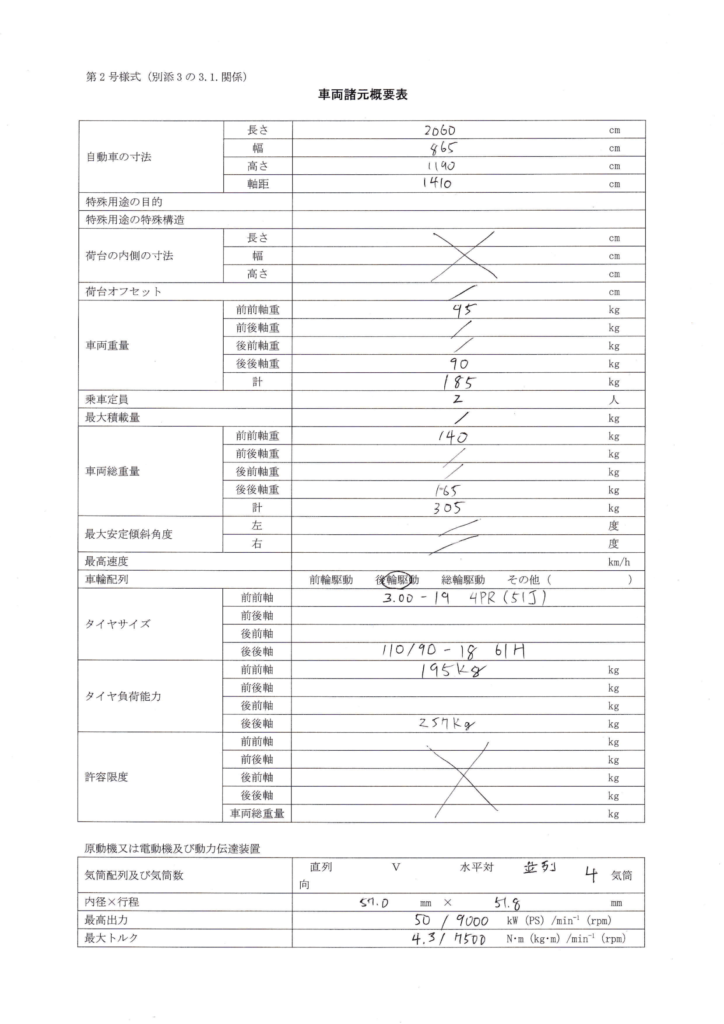 第２号様式（別添３の3.1.関係）
車両諸元概要表
自動車の寸法 長さ 2060 cm
幅 865 cm
高さ 1190 cm
軸距 1410 cm
特殊用途の目的
特殊用途の特殊構造
荷台の内側の寸法 長さ cm
幅 cm
高さ cm
荷台オフセット / cm
車両重量 前前軸重 95 kg
前後軸重 / kg
後前軸重 / kg
後後軸重 90 kg
計 185 kg
乗車定員 2 人
最大積載量 / kg
車両総重量 前前軸重 140 kg
前後軸重 / kg
後前軸重 / kg
後後軸重 165 kg
計 305 kg
最大安定傾斜角度 左 / 度
右 / 度
最高速度 km/h
車輪配列 前輪駆動 後輪駆動 総輪駆動 その他（ ）
タイヤサイズ 前前軸 3.00-19 4PR(51J)
前後軸
後前軸
後後軸 110/90-18 61H
タイヤ負荷能力 前前軸 195kg kg
前後軸 kg
後前軸 kg
後後軸 257kg kg
許容限度 前前軸 kg
前後軸 kg
後前軸 kg
後後軸 kg
車両総重量 kg
原動機又は電動機及び動力伝達装置
気筒配列及び気筒数 直列 V 水平対 並列 4 気筒
向
内径×行程 57.0 mm × 51.8 mm
最高出力 50 / 9000 kW (PS) /min⁻¹ (rpm)
最大トルク 4.3 / 7500 N・m (kg・m) /min⁻¹ (rpm)